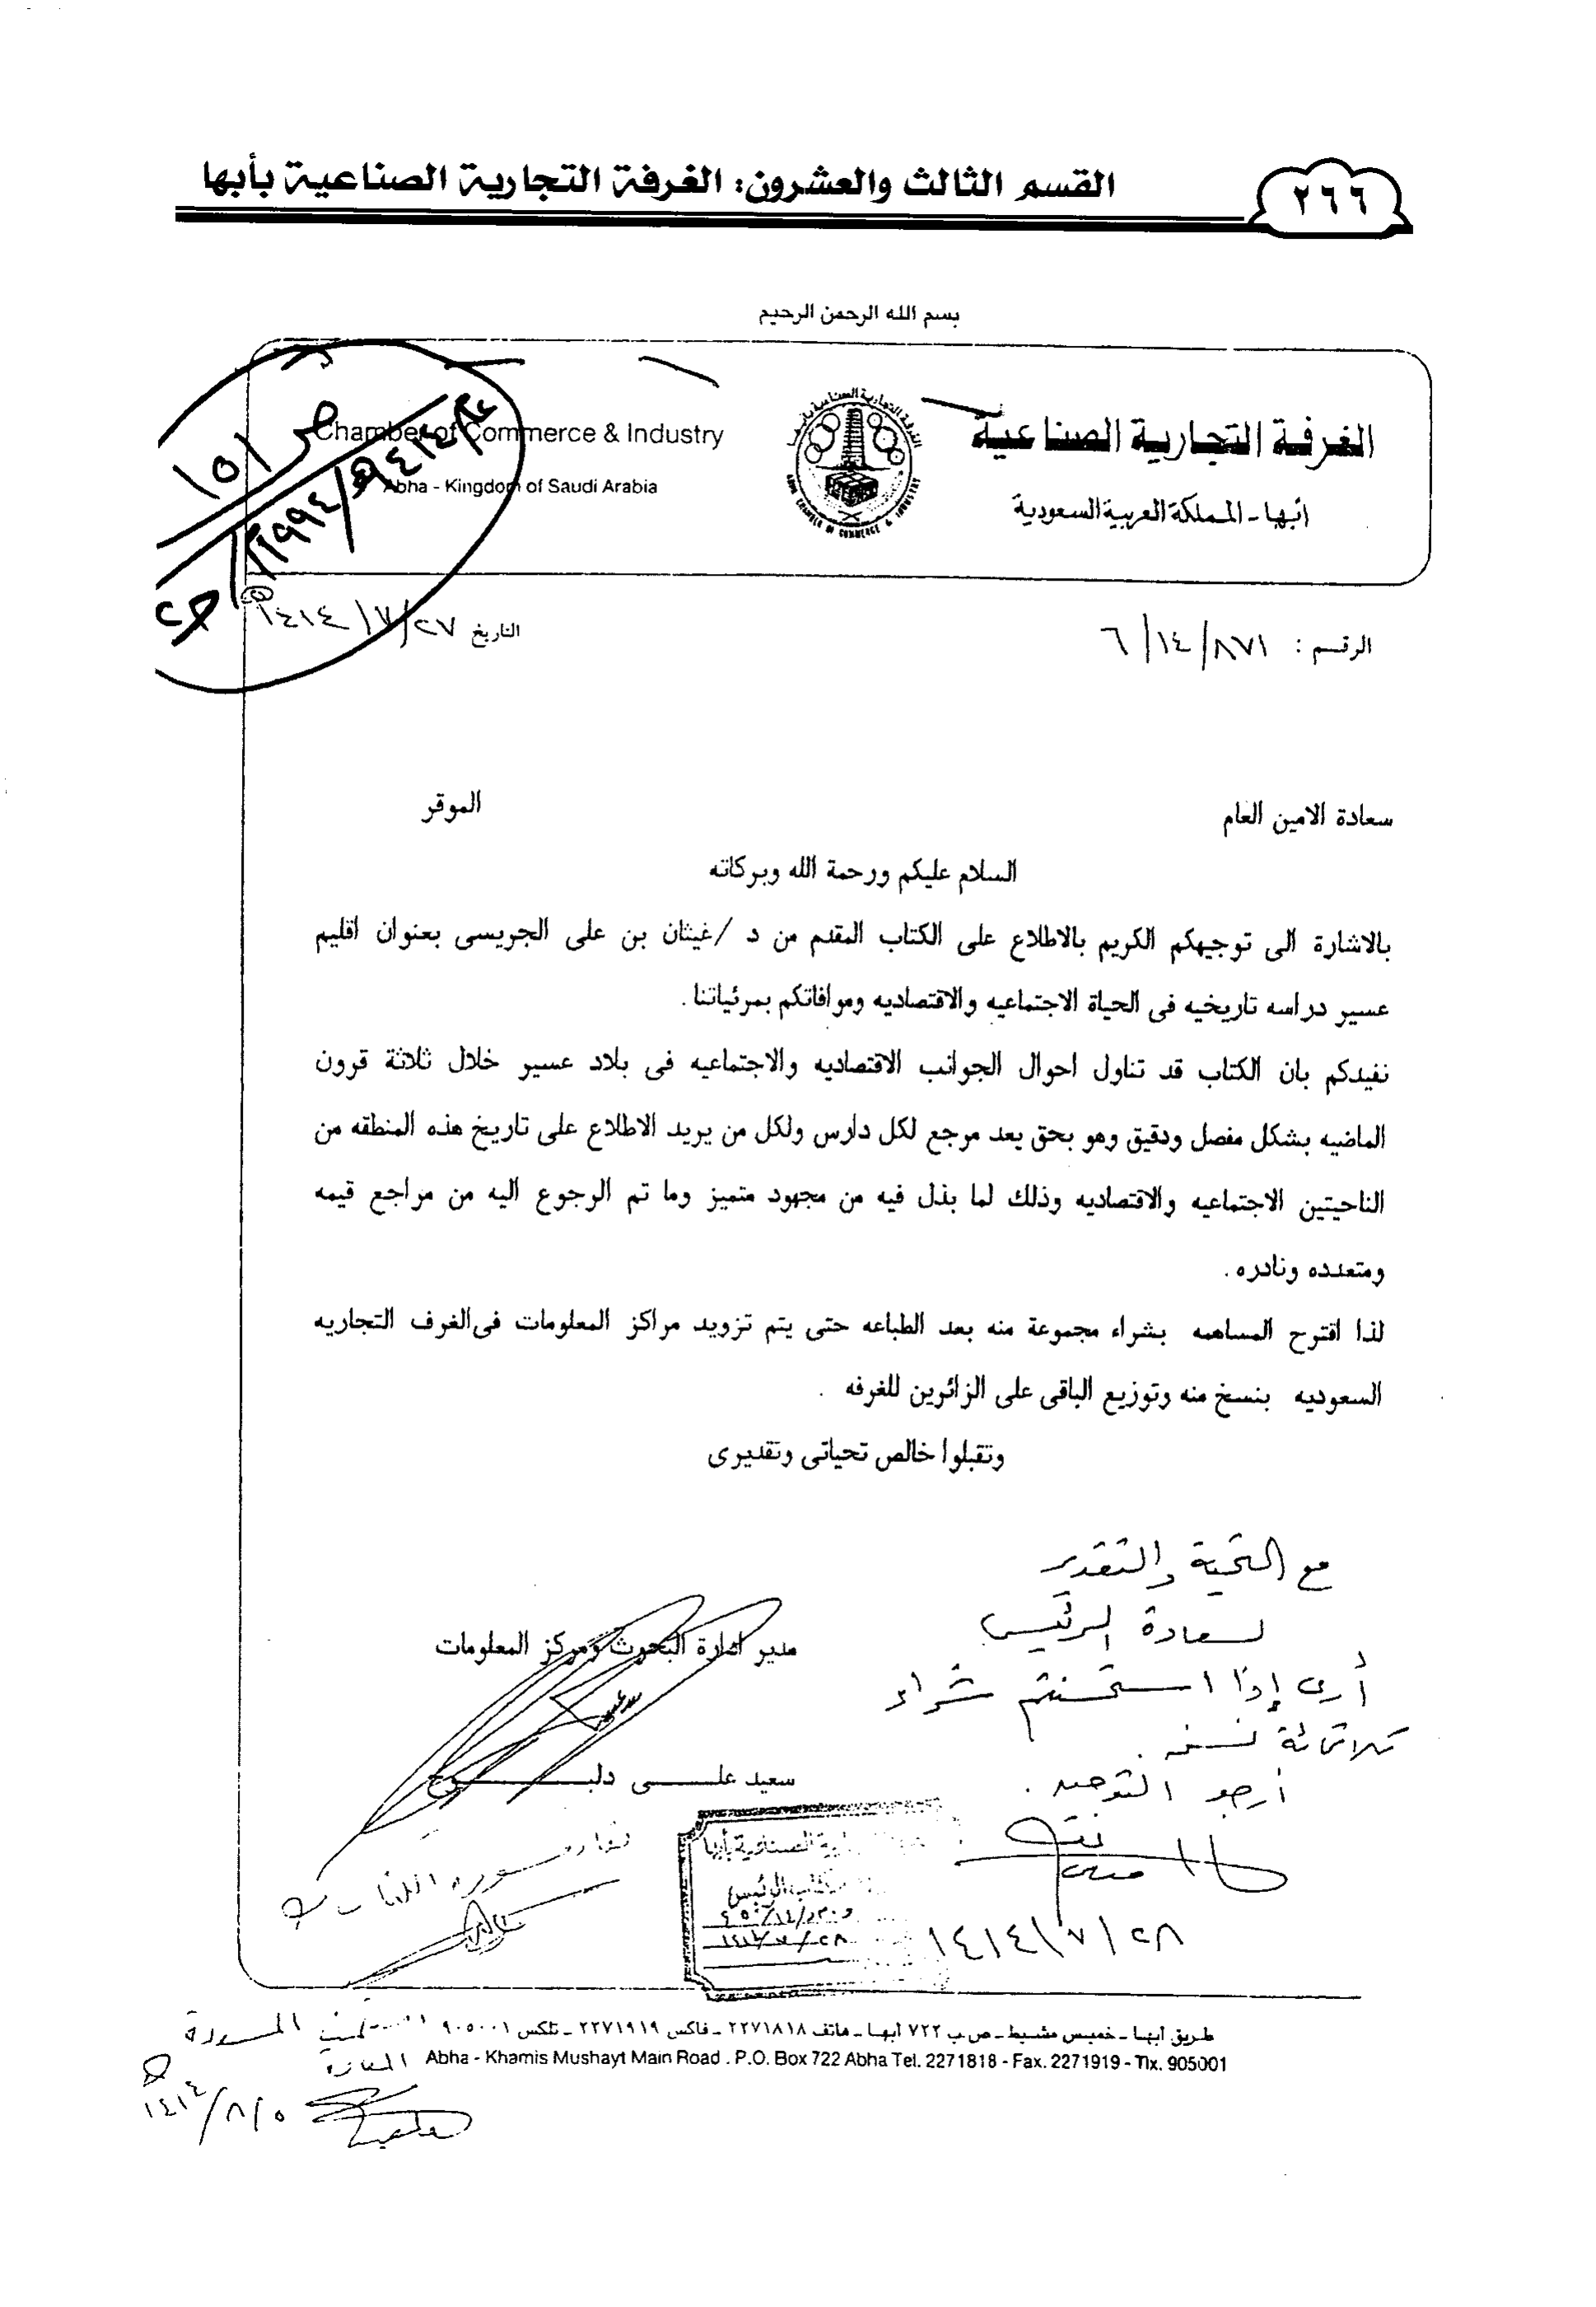 ٢٦٦
القسم الثالث والعشرون: الغرفة التجارية الصناعية بأبها
بسم الله الرحمن الرحيم
الغرفة التجارية الصناعية
أبها - المملكة العربية السعودية
Chamber of Commerce & Industry
Abha - Kingdom of Saudi Arabia
ABHA CHAMBER OF COMMERCE & INDUSTRY
ص ١٥١
الرقم : ٦/١٤/٨٧١
التاريخ ٢٧/٧/١٤١٤
سعادة الامين العام الموقر
السلام عليكم ورحمة الله وبركاته
بالاشارة الى توجيهكم الكريم بالاطلاع على الكتاب المقدم من د /غيثان بن على الجريسى بعنوان اقليم
عسير دراسه تاريخيه فى الحياة الاجتماعيه والاقتصاديه وموافاتكم بمرئياتنا .
نفيدكم بان الكتاب قد تناول احوال الجوانب الاقتصاديه والاجتماعيه فى بلاد عسير خلال ثلاثة قرون
الماضيه بشكل مفصل ودقيق وهو بحق يعد مرجع لكل دارس ولكل من يريد الاطلاع على تاريخ هذه المنطقه من
الناحيتين الاجتماعيه والاقتصاديه وذلك لما بذل فيه من مجهود متميز وما تم الرجوع اليه من مراجع قيمه
ومتعدده ونادره .
لذا اقترح المساهمه بشراء مجموعة منه بعد الطباعه حتى يتم تزويد مراكز المعلومات فى الغرف التجاريه
السعوديه بنسخ منه وتوزيع الباقى على الزائرين للغرفه .
وتقبلوا خالص تحياتى وتقديرى
مع التحية والتقدير
لسعادة الرئيس
أرى إذا استحسنتم شراء
ثلاثمائة نسخه .
أرجو التوجيه .
٢٨/٧/١٤١٤
مدير ادارة البحوث ومركز المعلومات
سعيد علـــى دلبـــوح
طريق أبها - خميس مشيط - ص ب ٧٢٢ أبها - هاتف ٢٢٧١٨١٨ - فاكس ٢٢٧١٩١٩ - تلكس ٩٠٥٠٠١
Abha - Khamis Mushayt Main Road . P.O. Box 722 Abha Tel. 2271818 - Fax. 2271919 - Tlx. 905001
١٤١٤/٨/٥